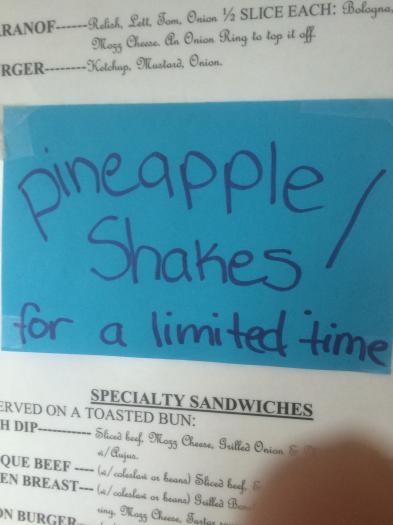 RANOF------Relish, Lett, Tom, Onion ½ SLICE EACH: Bologna,
Mozz Cheese. An Onion Ring to top it off.
RGER--------Ketchup, Mustard, Onion.
pineapple /
Shakes
for a limited time
SPECIALTY SANDWICHES
ERVED ON A TOASTED BUN:
H DIP----------- Sliced beef, Mozz Cheese, Grilled Onion &
w/Aujus.
QUE BEEF ---- (w/coleslaw or beans) Sliced beef,
EN BREAST--- (w/coleslaw or beans) Grilled
ring, Mozz Cheese, Tartar
ON BURGER